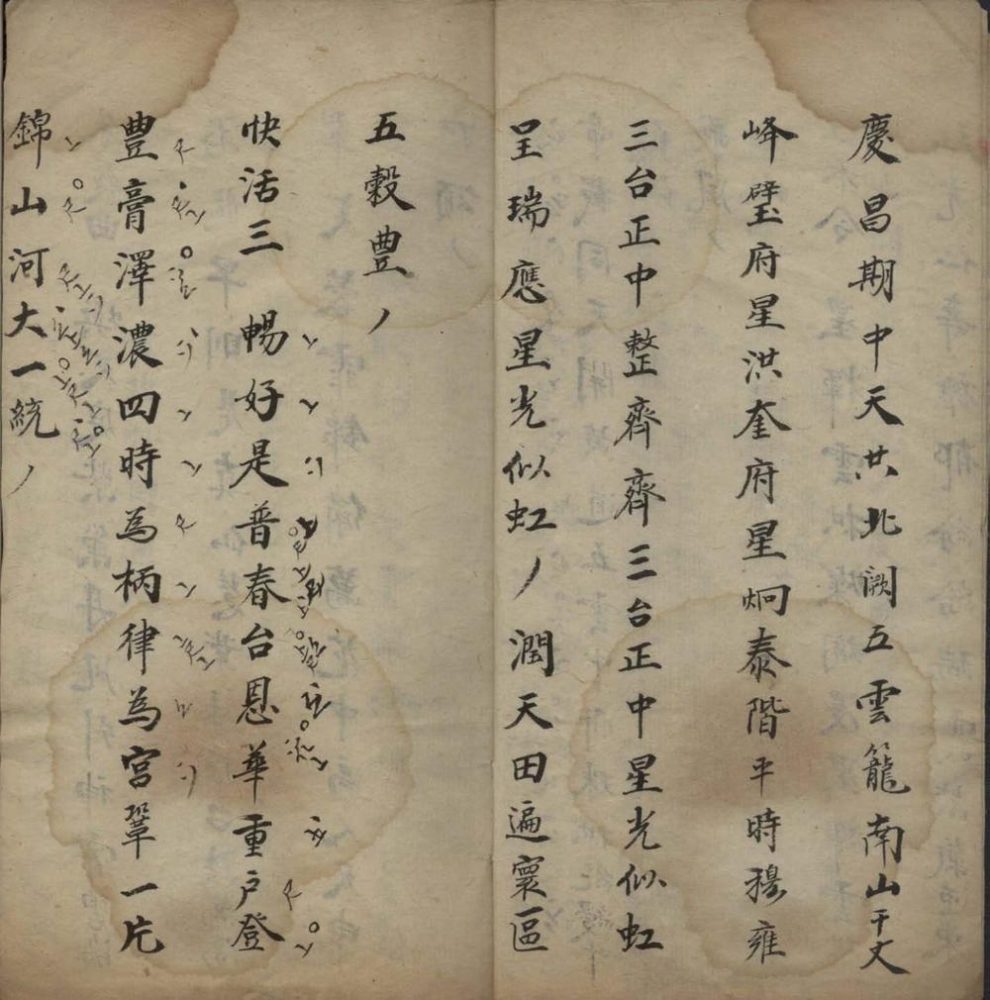 慶昌期中天共北闕五雲籠南山千丈
峰璧府星洪奎府星炯泰階平時穆雍
三台正中整齊齊三台正中星光似虹
呈瑞應星光似虹ノ潤天田遍寰區
五穀豊ノ
快活三 暢好是普春台恩華重户登
豊膏澤濃四時為柄律為宮鞏一片
錦山河大一統ノ